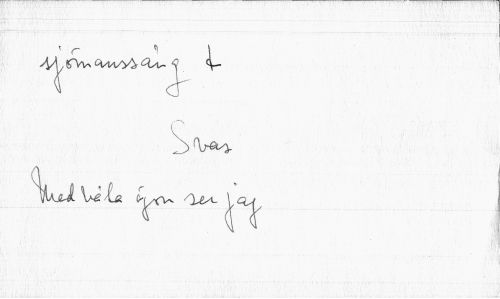 sjömanssång
Svas
Med våta ögon ser jag